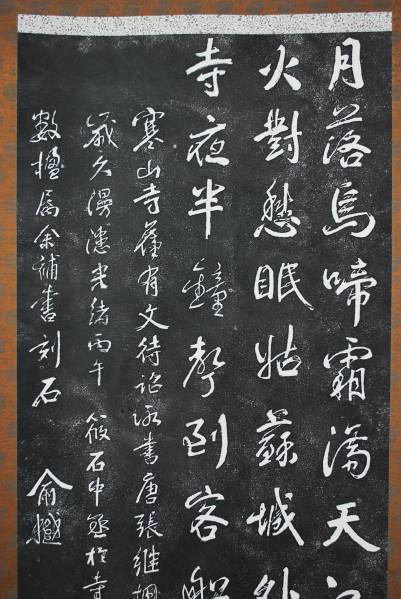 月落烏啼霜滿天江
火對愁眠姑蘇城外
寺夜半鐘聲到客船
寒山寺舊有文待詔所書唐張繼楓
歲久漫漶光緒丙午筱石中丞於寺
數楹屬余補書刻石
俞樾